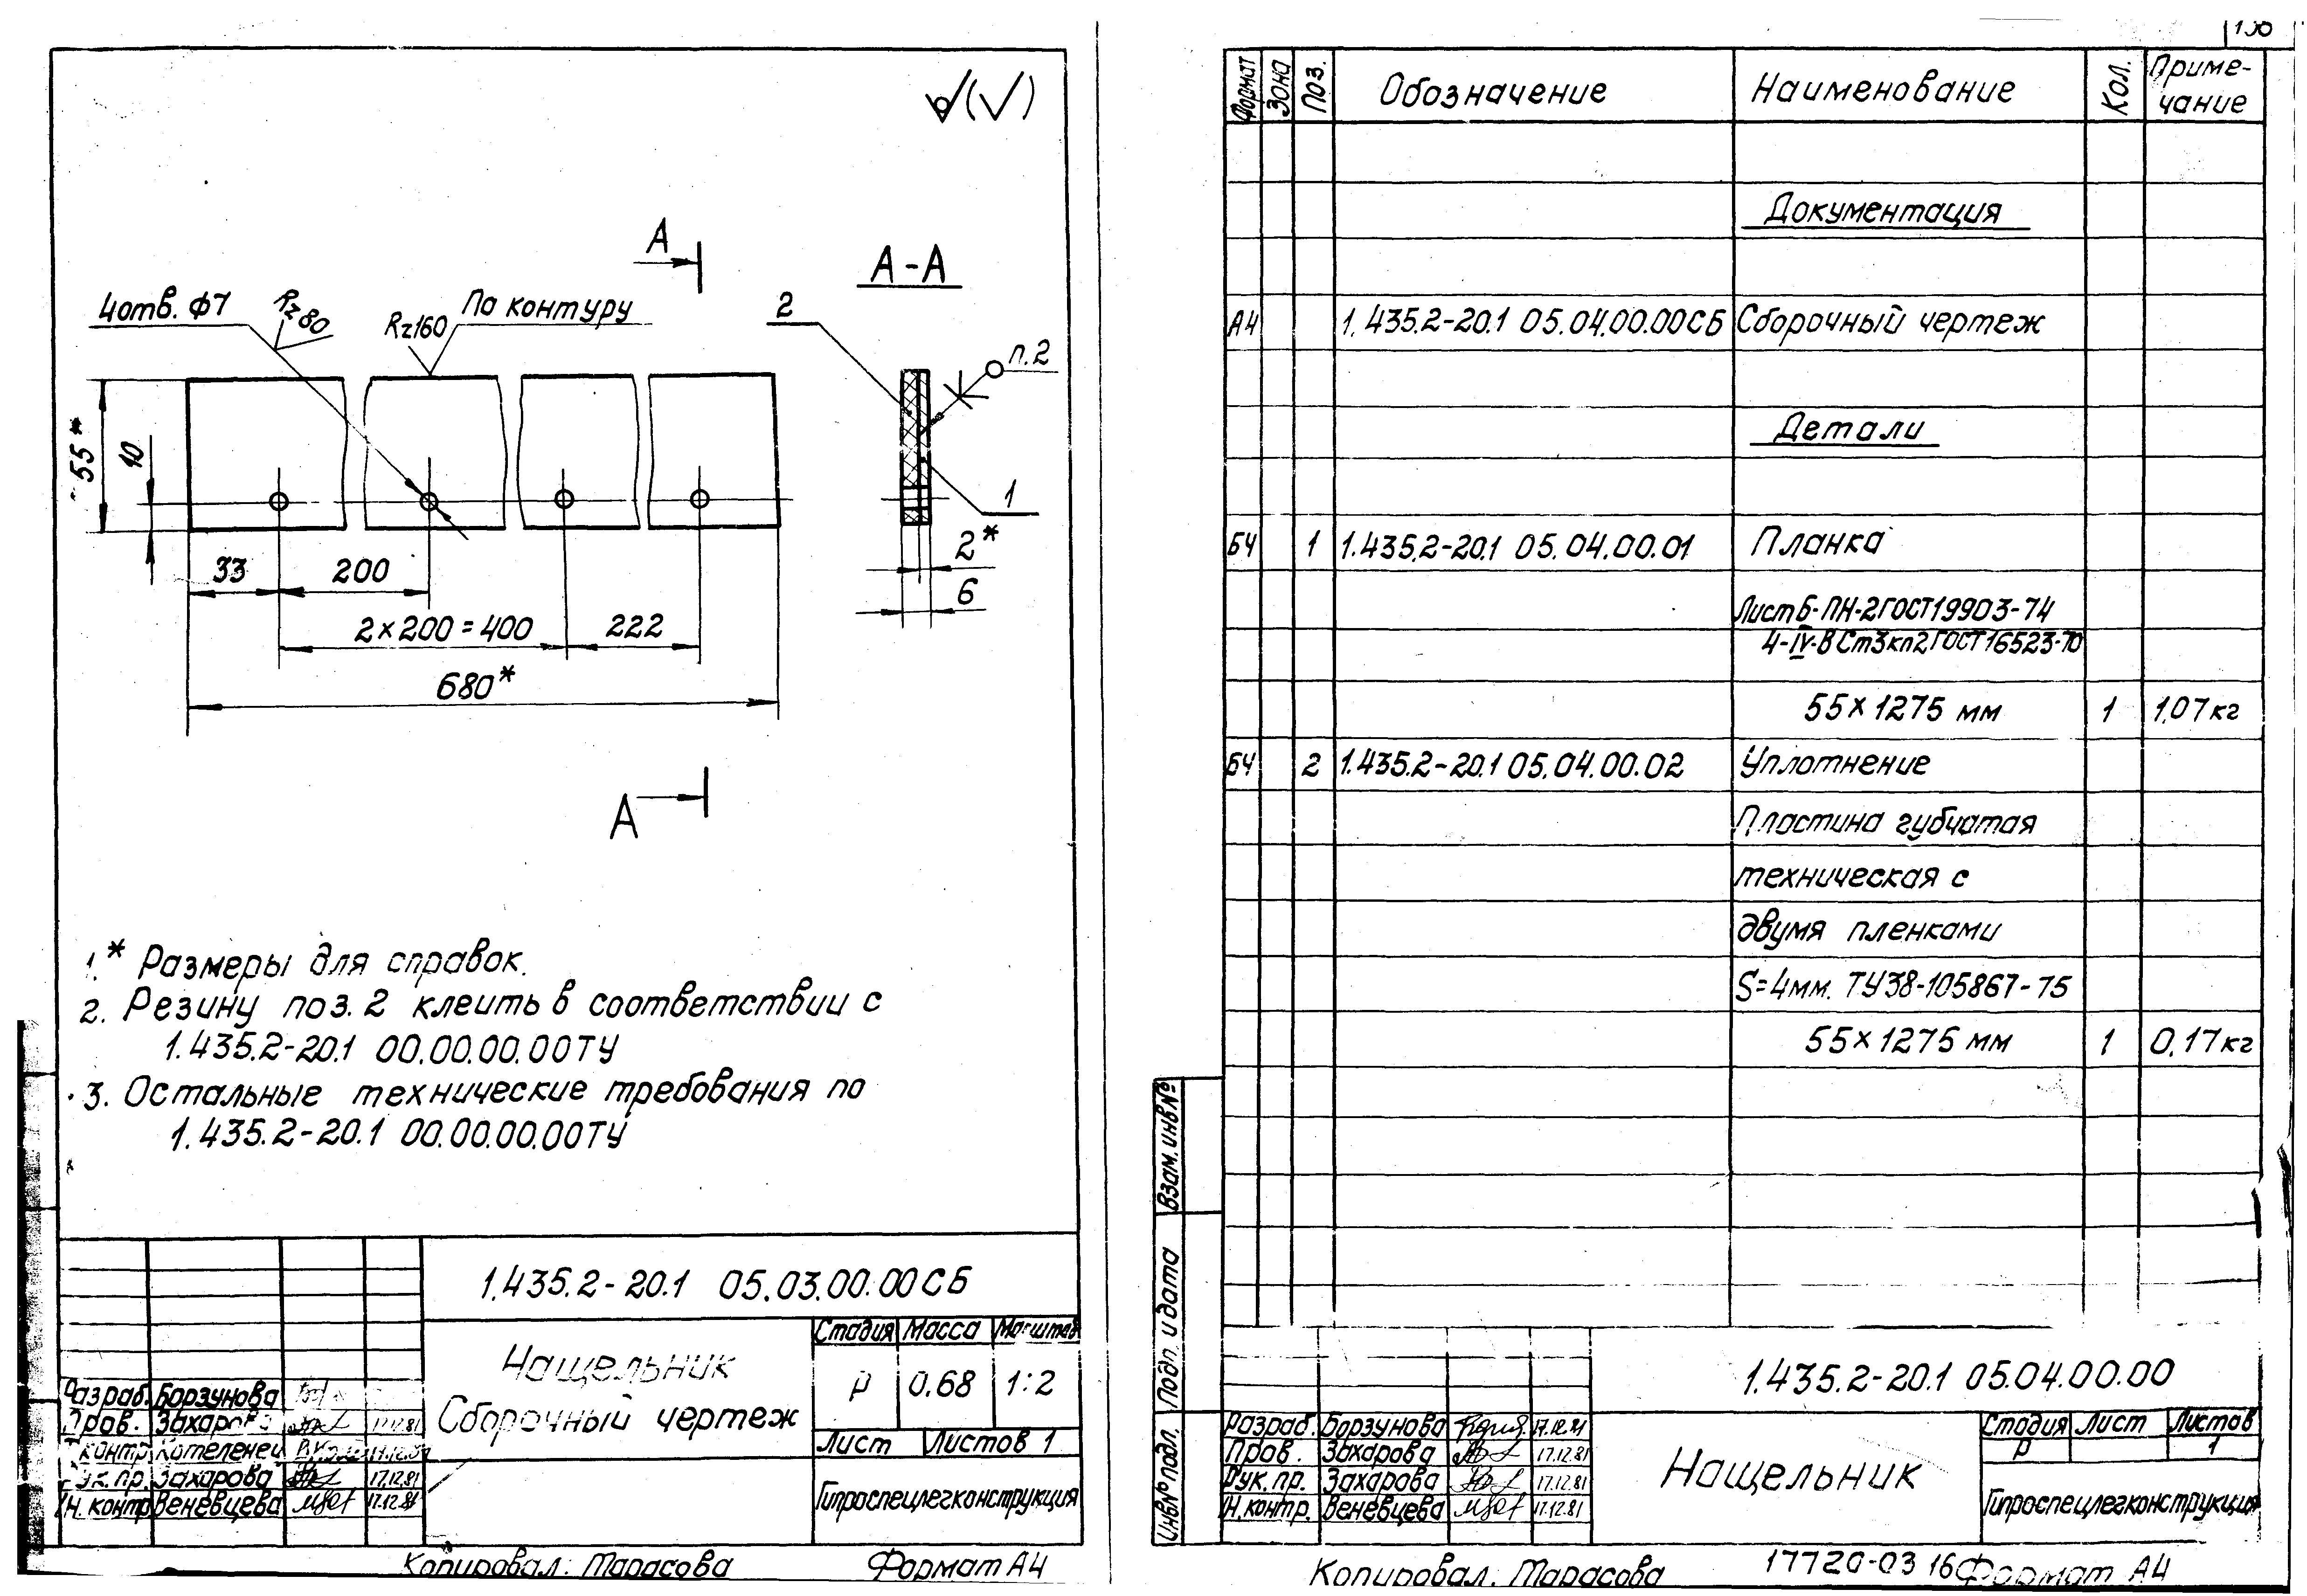 А
А-А
4отв. ф7
Rz80
Rz160
По контуру
2
п.2
55*
10
1
2*
6
33
200
2×200=400
222
680*
А
1.* Размеры для справок.
2. Резину поз. 2 клеить в соответствии с
1.435.2-20.1 00.00.00.00ТУ
3. Остальные технические требования по
1.435.2-20.1 00.00.00.00ТУ
1.435.2-20.1 05.03.00.00СБ
Нащельник
Сборочный чертеж
Стадия Масса Масштаб
Р 0.68 1:2
Лист Листов 1
Гипроспецлегконструкция
Разраб. Борзунова
Пров. Захарова 17.12.81
Т.контр. Котеленец
Рук. пр. Захарова 17.12.81
Н. контр. Веневцева 17.12.81
Копировал: Тарасова Формат А4
Формат Зона Поз. Обозначение Наименование Кол. Приме-
чание
Документация
А4 1.435.2-20.1 05.04.00.00СБ Сборочный чертеж
Детали
БЧ 1 1.435.2-20.1 05.04.00.01 Планка
Лист Б-ПН-2 ГОСТ 19903-74
4-IV-В Ст3кп2 ГОСТ 16523-70
55×1275 мм 1 1.07кг
БЧ 2 1.435.2-20.1 05.04.00.02 Уплотнение
Пластина губчатая
техническая с
двумя пленками
S=4мм. ТУ38-105867-75
55×1275 мм 1 0.17кг
Взам. инв №
Подп. и дата
Инв № подл.
1.435.2-20.1 05.04.00.00
Нащельник
Стадия Лист Листов
Р 1
Гипроспецлегконструкция
Разраб. Борзунова 17.12.81
Пров. Захарова 17.12.81
Рук. пр. Захарова 17.12.81
Н. контр. Веневцева 17.12.81
Копировал. Тарасова 17720-03 16 Формат А4